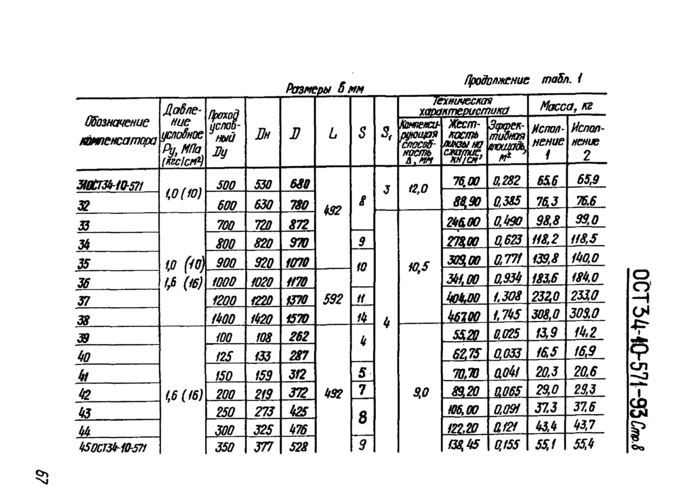 Продолжение табл. 1
Размеры в мм
Обозначение компенсатора | Давление условное Ру, МПа (кгс/см²) | Проход условный Dу | Dн | D | L | S | S₁ | Техническая характеристика | Масса, кг
Компенсирующая способность Δ, мм | Жесткость линзы на сжатие, кН/см | Эффективная площадь, м² | Исполнение 1 | Исполнение 2
31 ОСТ 34-10-571 | 1,0 (10) | 500 | 530 | 680 | 492 | 8 | 3 | 12,0 | 76,00 | 0,282 | 65,6 | 65,9
32 | 600 | 630 | 780 | 88,90 | 0,385 | 76,3 | 76,6
33 | 1,0 (10) 1,6 (16) | 700 | 720 | 872 | 4 | 10,5 | 246,00 | 0,490 | 98,8 | 99,0
34 | 800 | 820 | 970 | 9 | 278,00 | 0,623 | 118,2 | 118,5
35 | 900 | 920 | 1070 | 10 | 309,00 | 0,771 | 139,8 | 140,0
36 | 1000 | 1020 | 1170 | 592 | 341,00 | 0,934 | 183,6 | 184,0
37 | 1200 | 1220 | 1370 | 11 | 404,00 | 1,308 | 232,0 | 233,0
38 | 1400 | 1420 | 1570 | 14 | 467,00 | 1,745 | 308,0 | 309,0
39 | 1,6 (16) | 100 | 108 | 262 | 492 | 4 | 9,0 | 55,20 | 0,025 | 13,9 | 14,2
40 | 125 | 133 | 287 | 62,75 | 0,033 | 16,5 | 16,9
41 | 150 | 159 | 312 | 5 | 70,70 | 0,041 | 20,3 | 20,6
42 | 200 | 219 | 372 | 7 | 89,20 | 0,065 | 29,0 | 29,3
43 | 250 | 273 | 425 | 8 | 106,00 | 0,091 | 37,3 | 37,6
44 | 300 | 325 | 476 | 122,20 | 0,121 | 43,4 | 43,7
45 ОСТ 34-10-571 | 350 | 377 | 528 | 9 | 138,45 | 0,155 | 55,1 | 55,4
ОСТ 34-10-571-93 Стр. 8
67